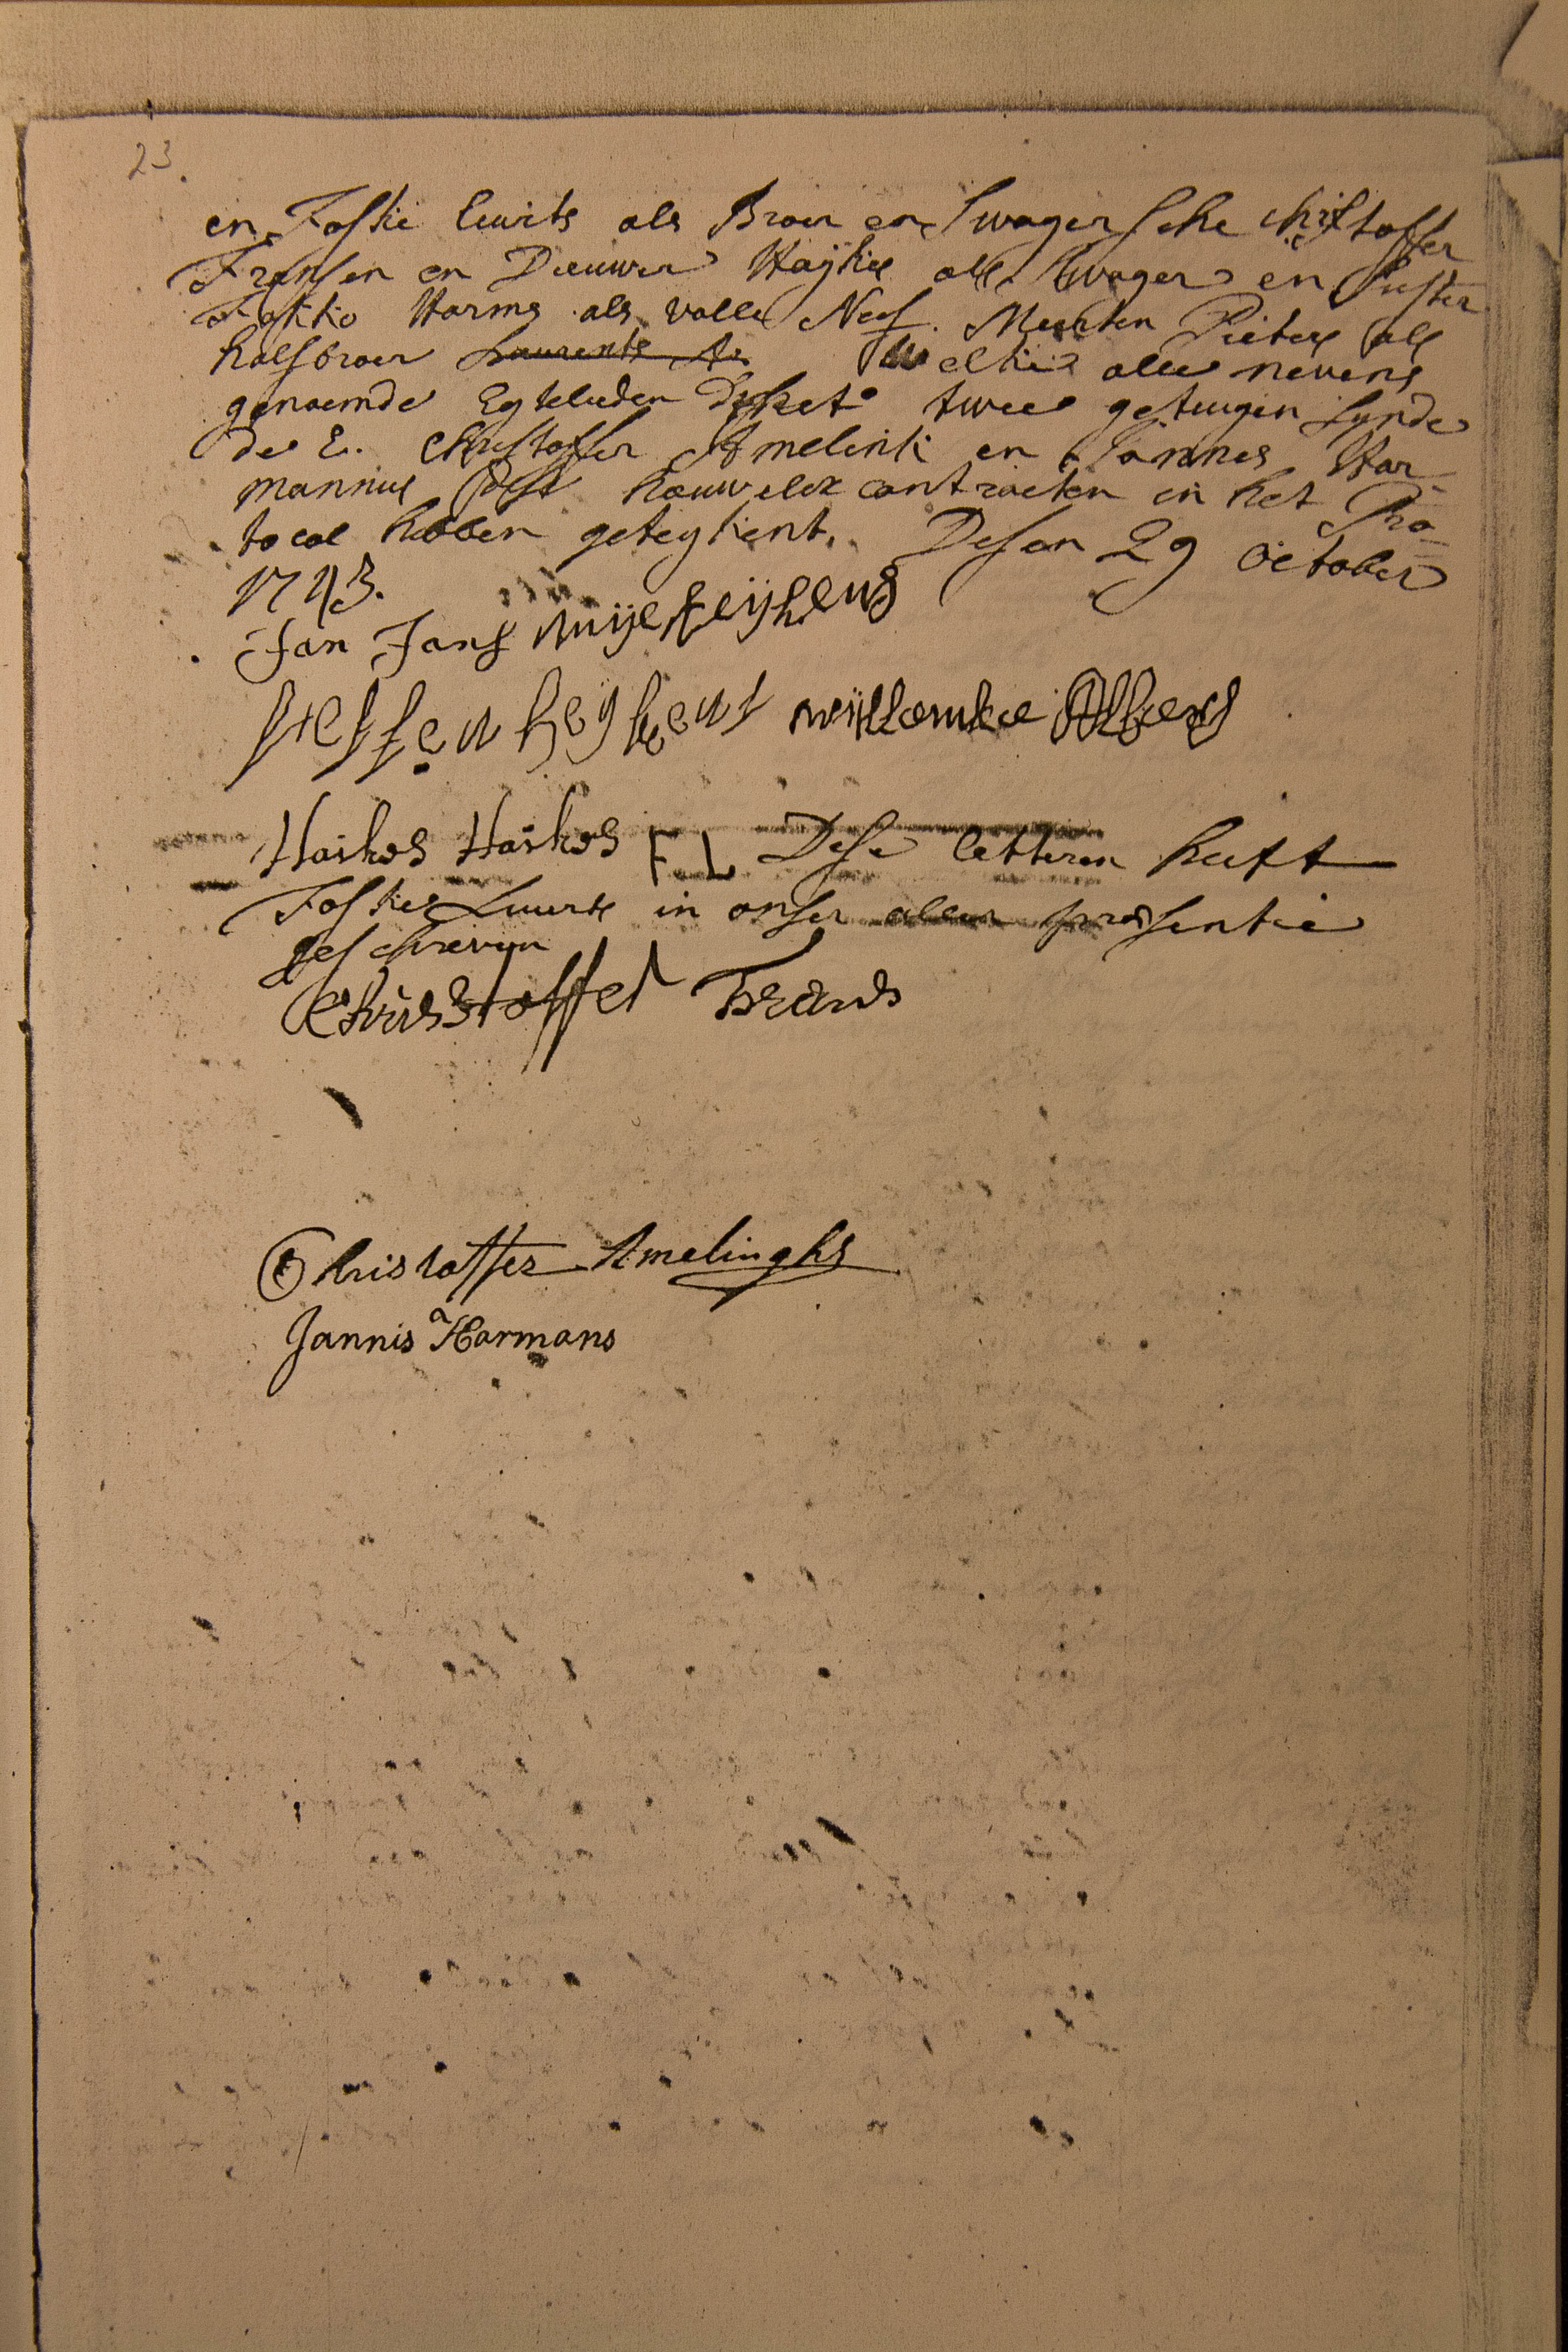 23.
en Foskie Luurts als Broer en Swagersche Christoffer
Fransen en Dieuwer Haijkes als Swager en Suster
Fokko Harms als volle Neef. Meerten Pieters als
halfbroer Laurents A.
Welkie alle nevens
genoemde Egtelieden twee getuigen Synde
de E. Christoffer Amelink en Jannes Har
mannus dese houwelex contracten in het Pro=
tocol hebben geteykent. Desen 29 October
1743.
Jan Jans
heykens willemke Albers
Haikes Haikes F L Dese letteren heeft
Foskie Luurts in onser aller presentie
geschreven
Christoffer Frans
Christoffer Amelinghs
Jannis Harmans